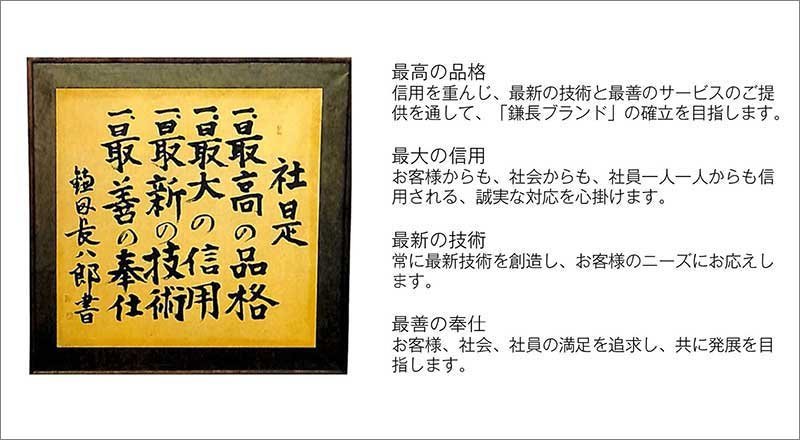 社是
一、最高の品格
一、最大の信用
一、最新の技術
一、最善の奉仕
鎌田長八郎書
最高の品格
信用を重んじ、最新の技術と最善のサービスのご提
供を通して、「鎌長ブランド」の確立を目指します。
最大の信用
お客様からも、社会からも、社員一人一人からも信
用される、誠実な対応を心掛けます。
最新の技術
常に最新技術を創造し、お客様のニーズにお応えし
ます。
最善の奉仕
お客様、社会、社員の満足を追求し、共に発展を目
指します。